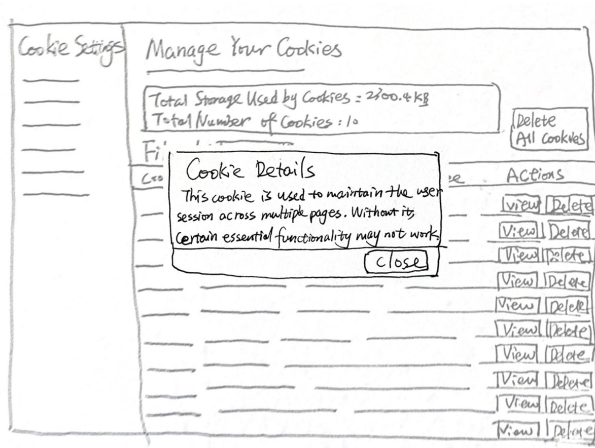 Cookie Settings
Manage Your Cookies
Total Storage Used by Cookies = 2700.4 KB
Total Number of Cookies : 10
Delete
All Cookies
Actions
Cookie Details
This cookie is used to maintain the user
session across multiple pages. Without it,
Certain essential functionality may not work
close
View Delete
View Delete
View Delete
View Delete
View Delete
View Delete
View Delete
View Delete
View Delete
View Delete